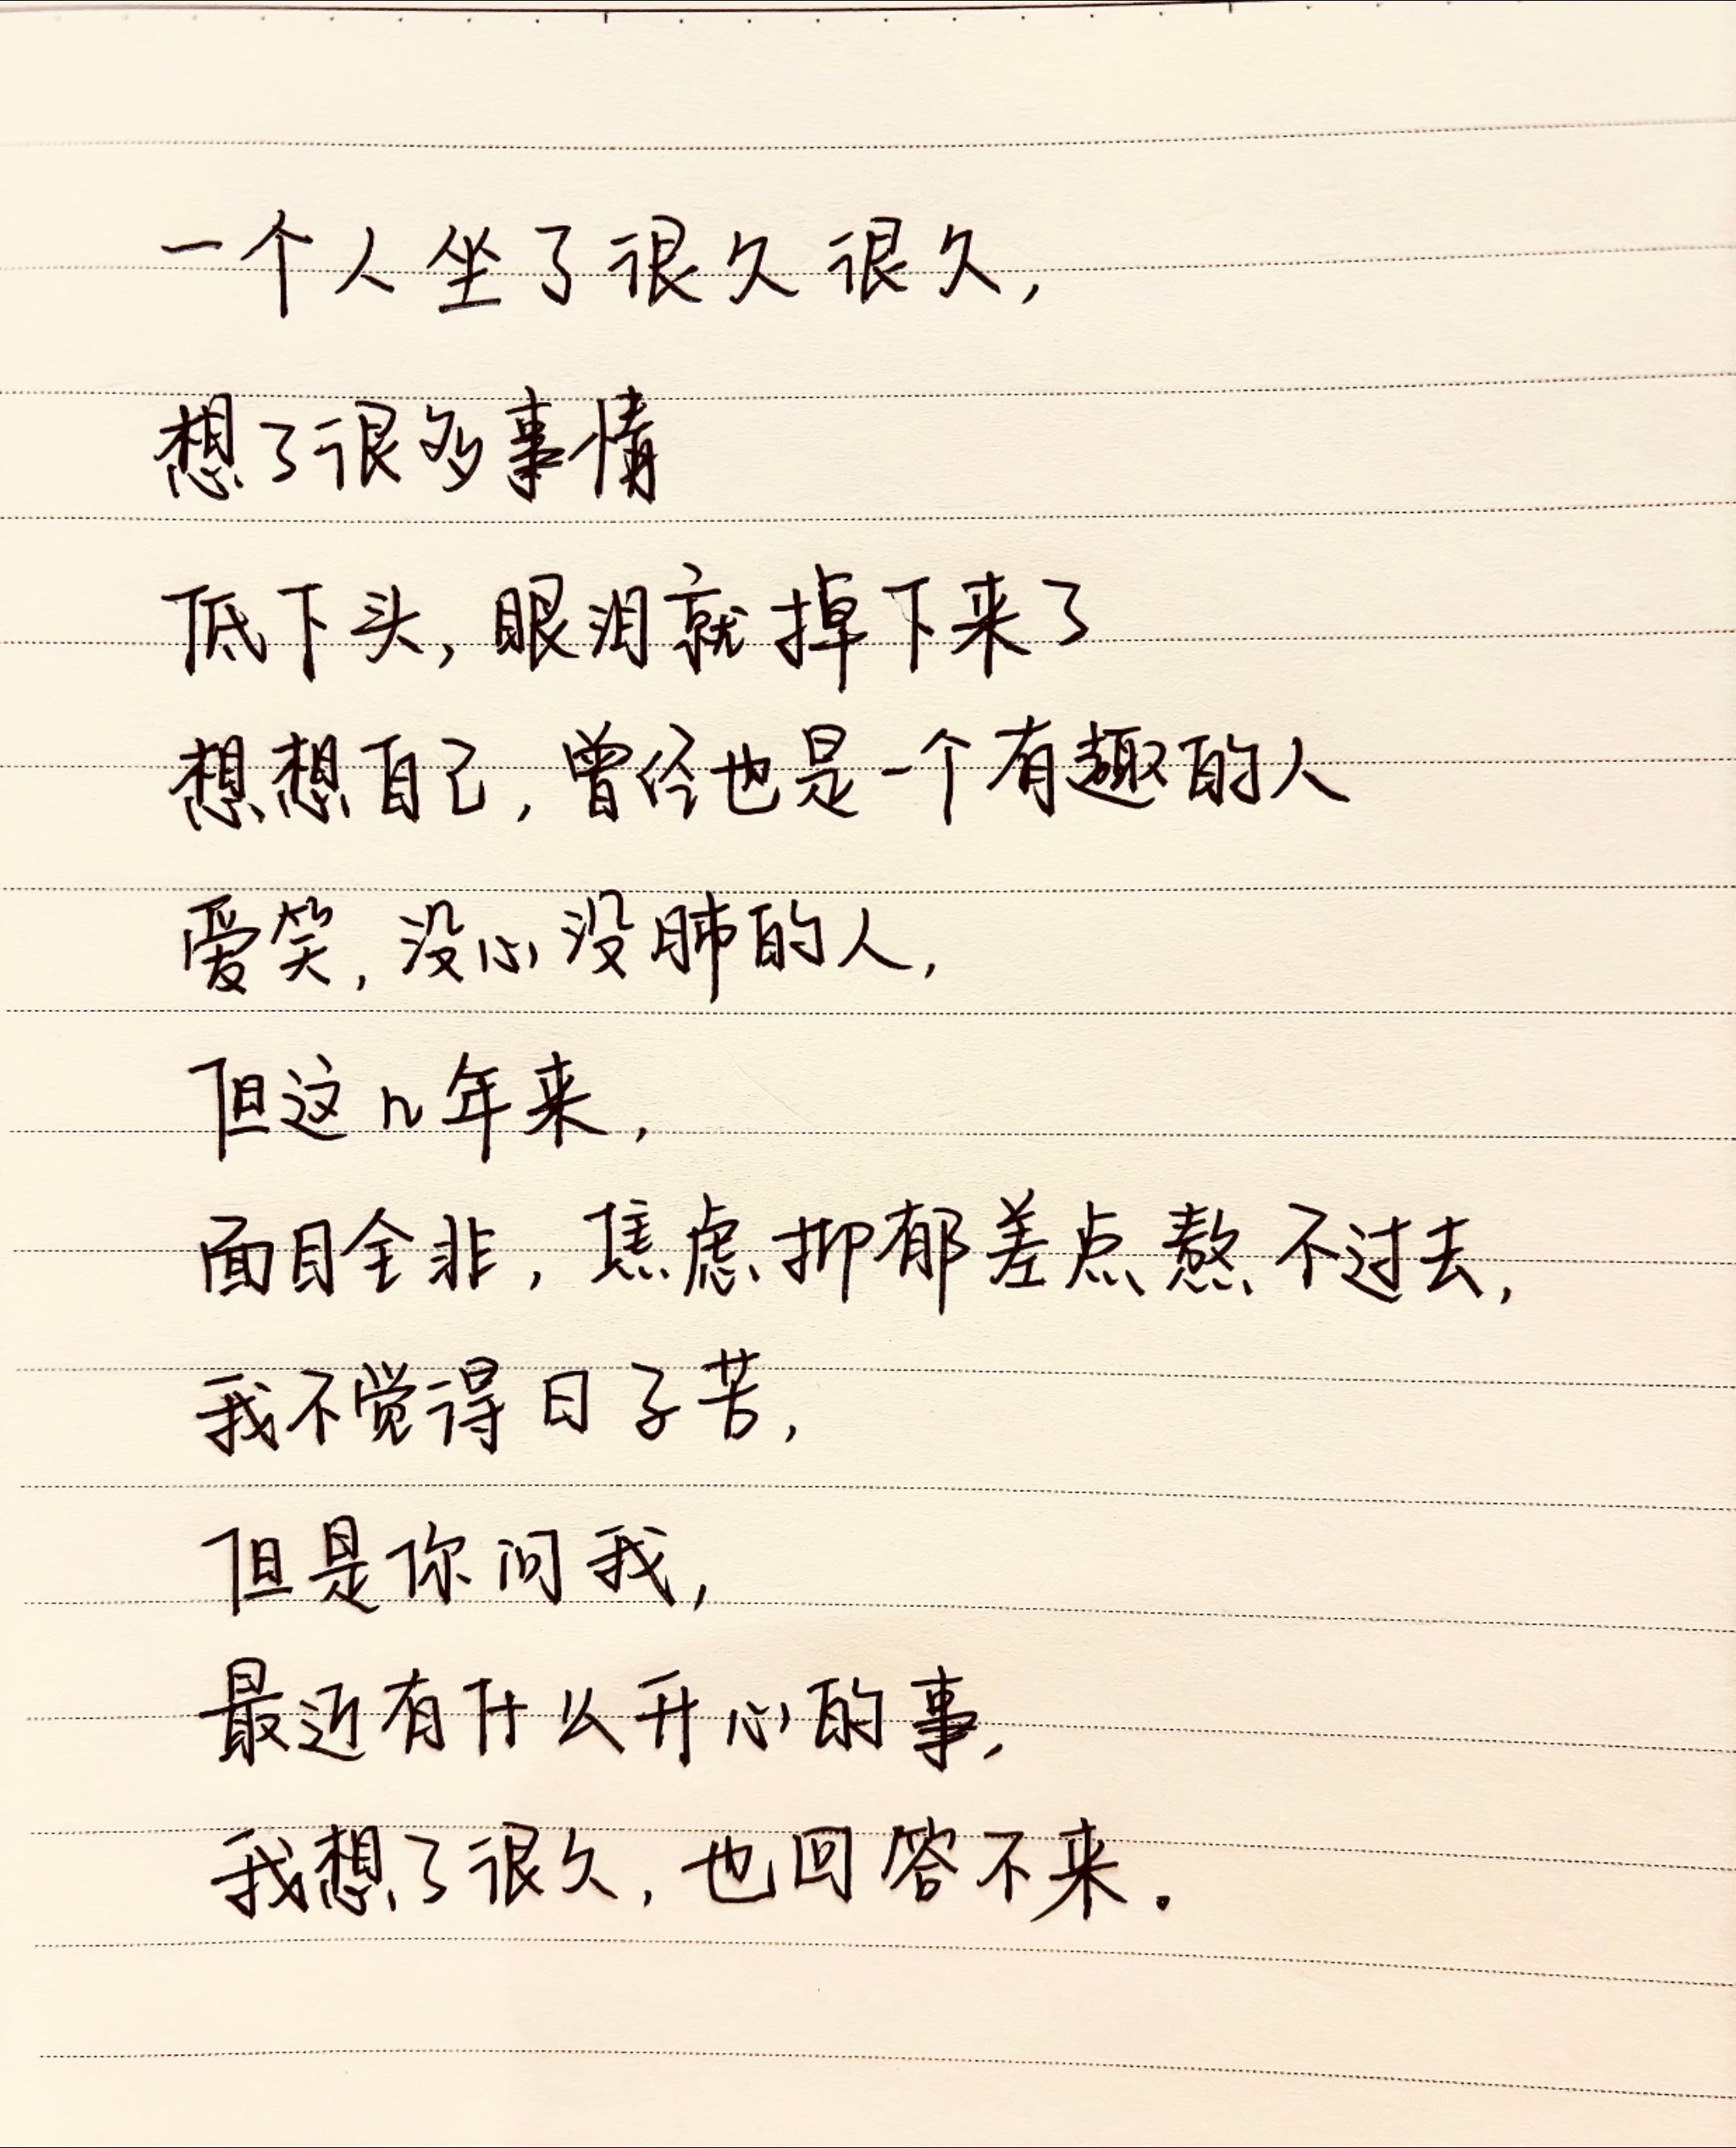 一个人坐了很久很久,
想了很多事情
低下头,眼泪就掉下来了
想想自己,曾经也是一个有趣的人
爱笑,没心没肺的人,
但这n年来,
面目全非,焦虑抑郁差点熬不过去,
我不觉得日子苦,
但是你问我,
最近有什么开心的事,
我想了很久,也回答不来.